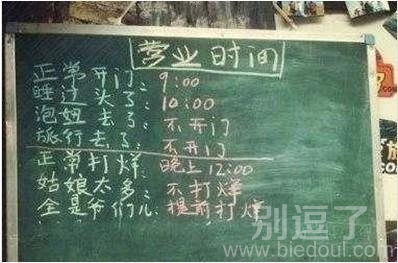 营业时间
正常开门: 9:00
睡过头了: 10:00
泡妞去了: 不开门
旅行去了: 不开门
正常打烊: 晚上12:00
姑娘太多: 不打烊
全是爷们儿: 提前打烊
别逗了
www.biedoul.com